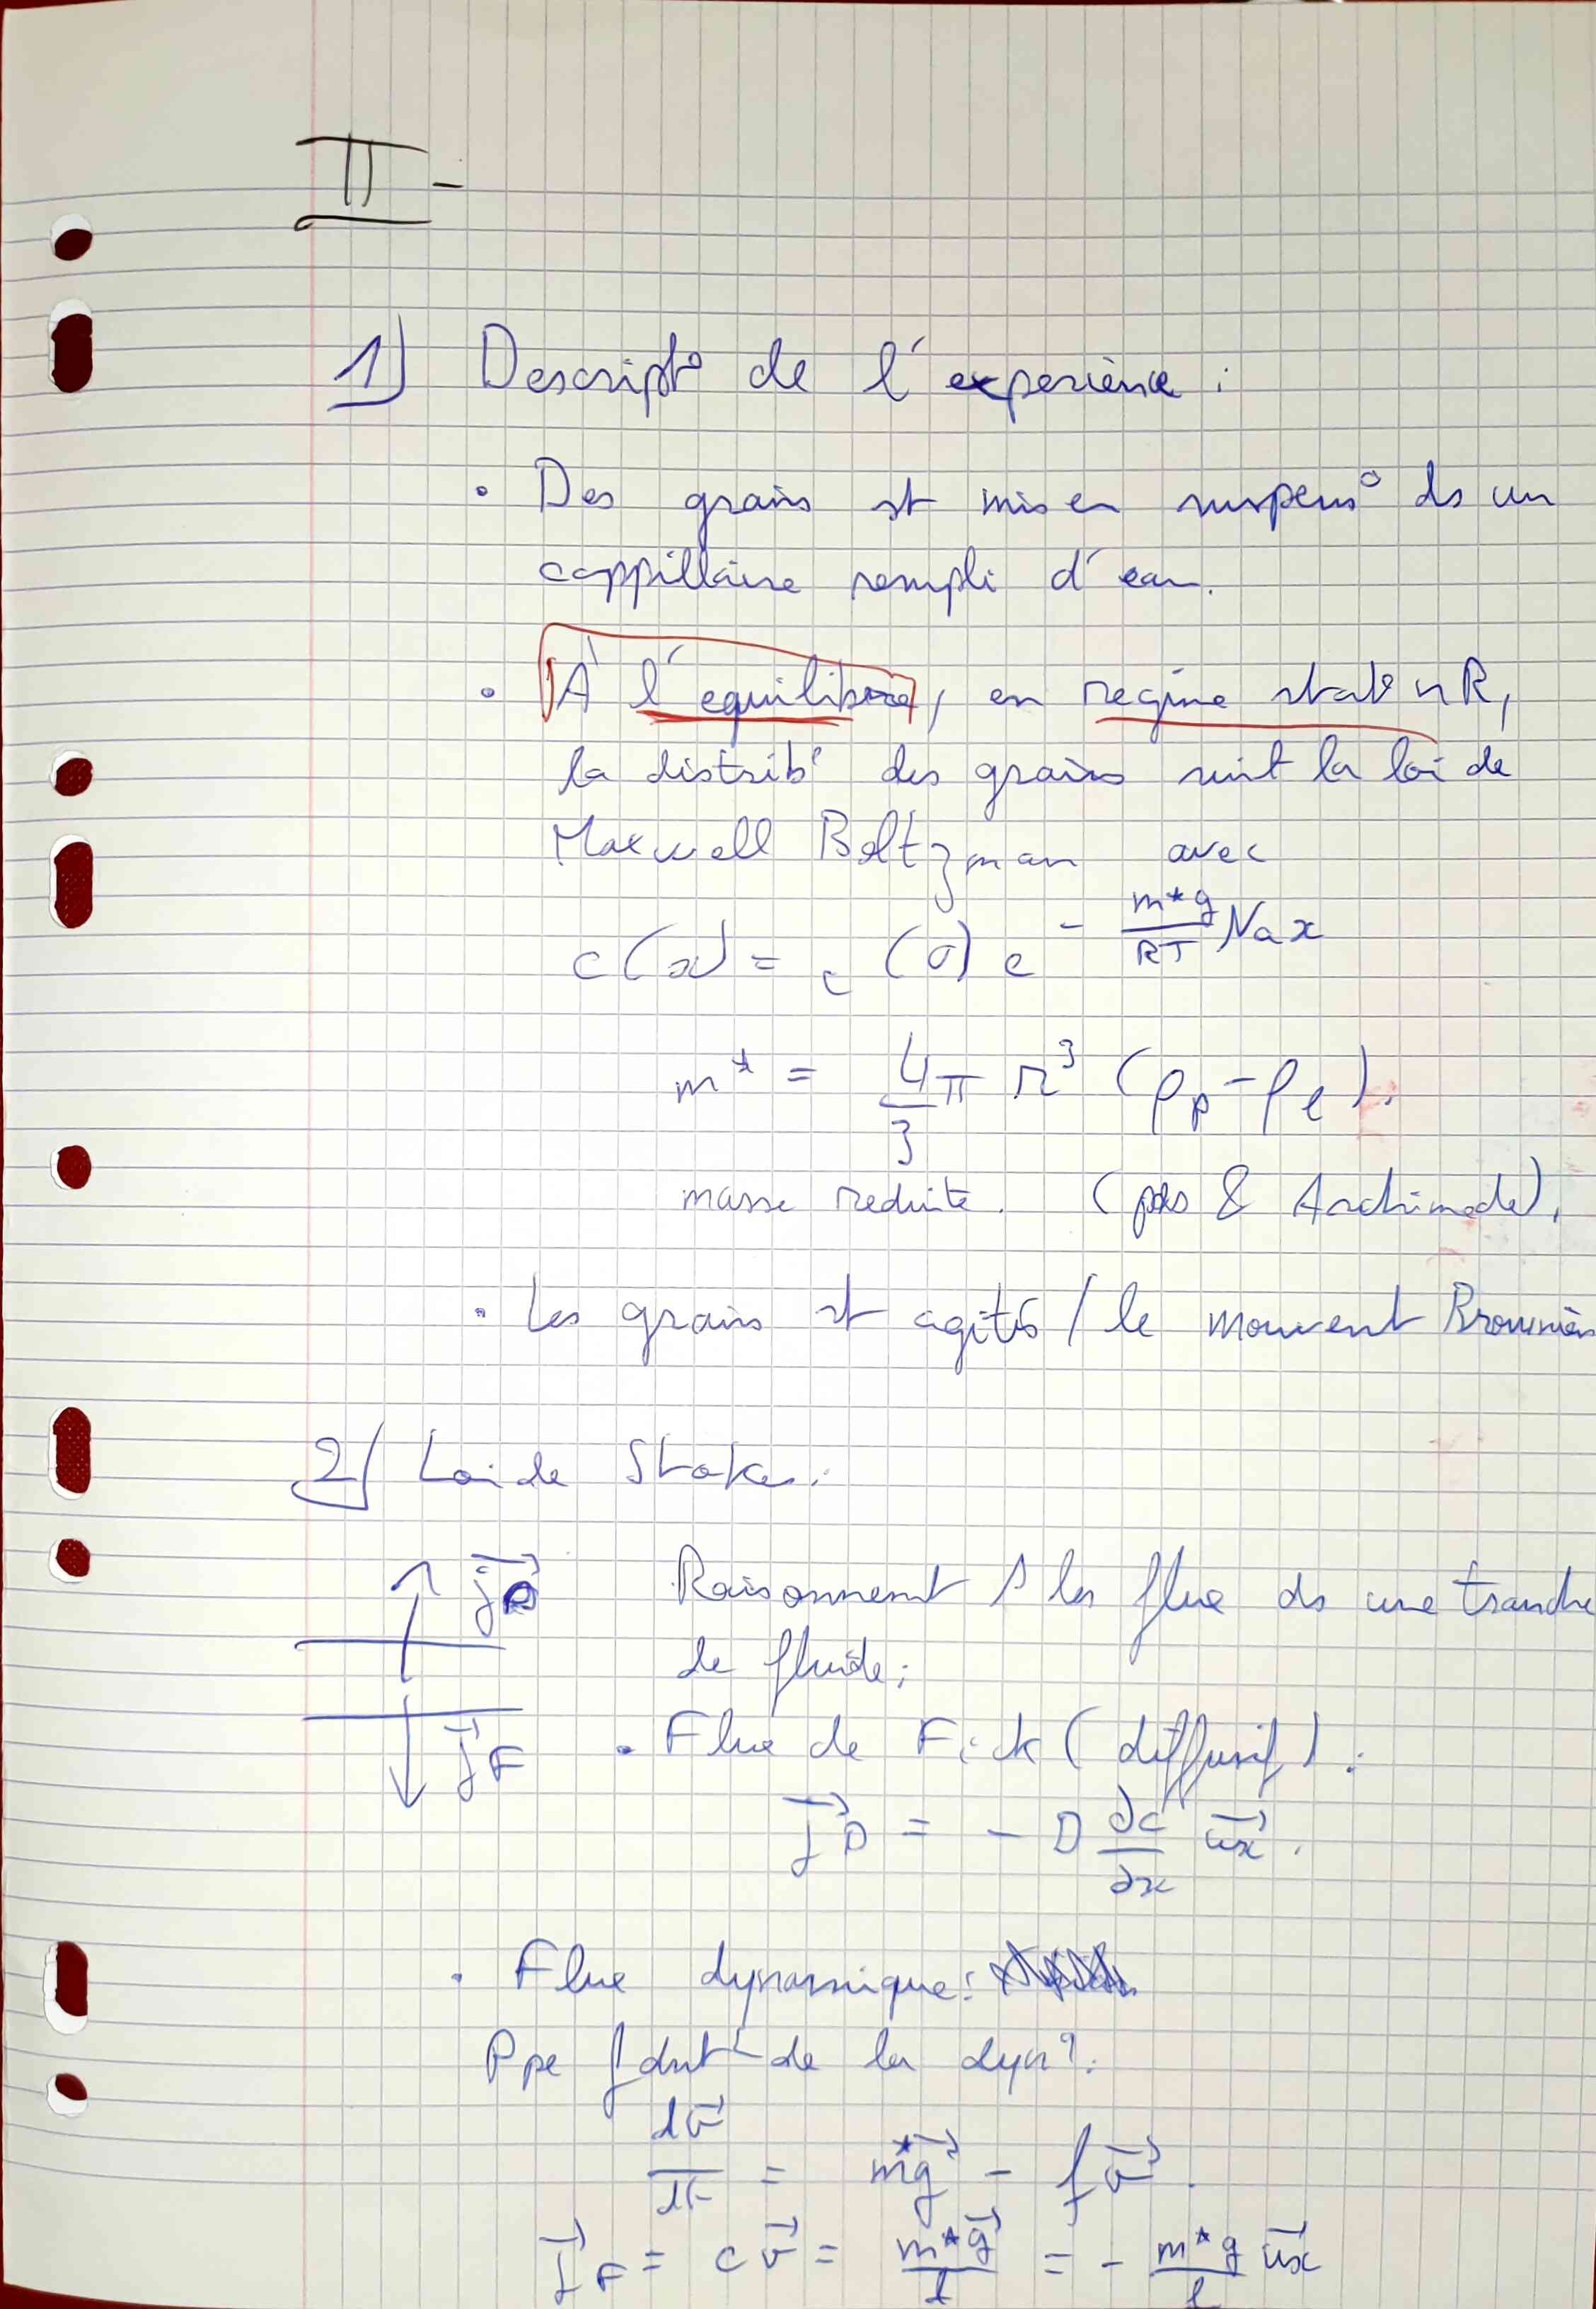 II -
1) Descript° de l'experience :
• Des grains st mis en suspens° ds un
cappillaire rempli d'eau.
• À l'equilibre, en regime stat° nR,
la distrib° des grains suit la loi de
Maxwell Boltzman avec
c(x) = c(0) e^{- \frac{m* g}{RT} Na x}
m* = \frac{4}{3} π r³ (ρp - ρl).
masse reduite. (pds & Archimede).
• Les grains st agités / le mouvent Brownien
2/ Loi de Stokes.
\vec{jD} Raisonnement / les flux ds une tranche
de fluide :
\vec{jF} • Flux de Fick (diffusif) :
\vec{jD} = - D \frac{∂c}{∂x} \vec{ux}.
• Flux dynamique :
Ppe fdnt^l de la dyn^q.
\frac{d\vec{v}}{dt} = m*\vec{g} - f\vec{v}.
\vec{jF} = c\vec{v} = \frac{m*\vec{g}}{f} = - \frac{m* g}{f} \vec{ux}